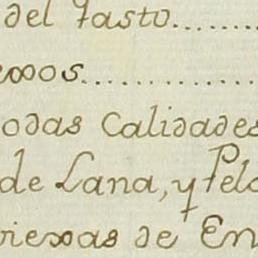 del Fasto........
exos..............
odas Calidades
de Lana, y Pelo
viexas de En